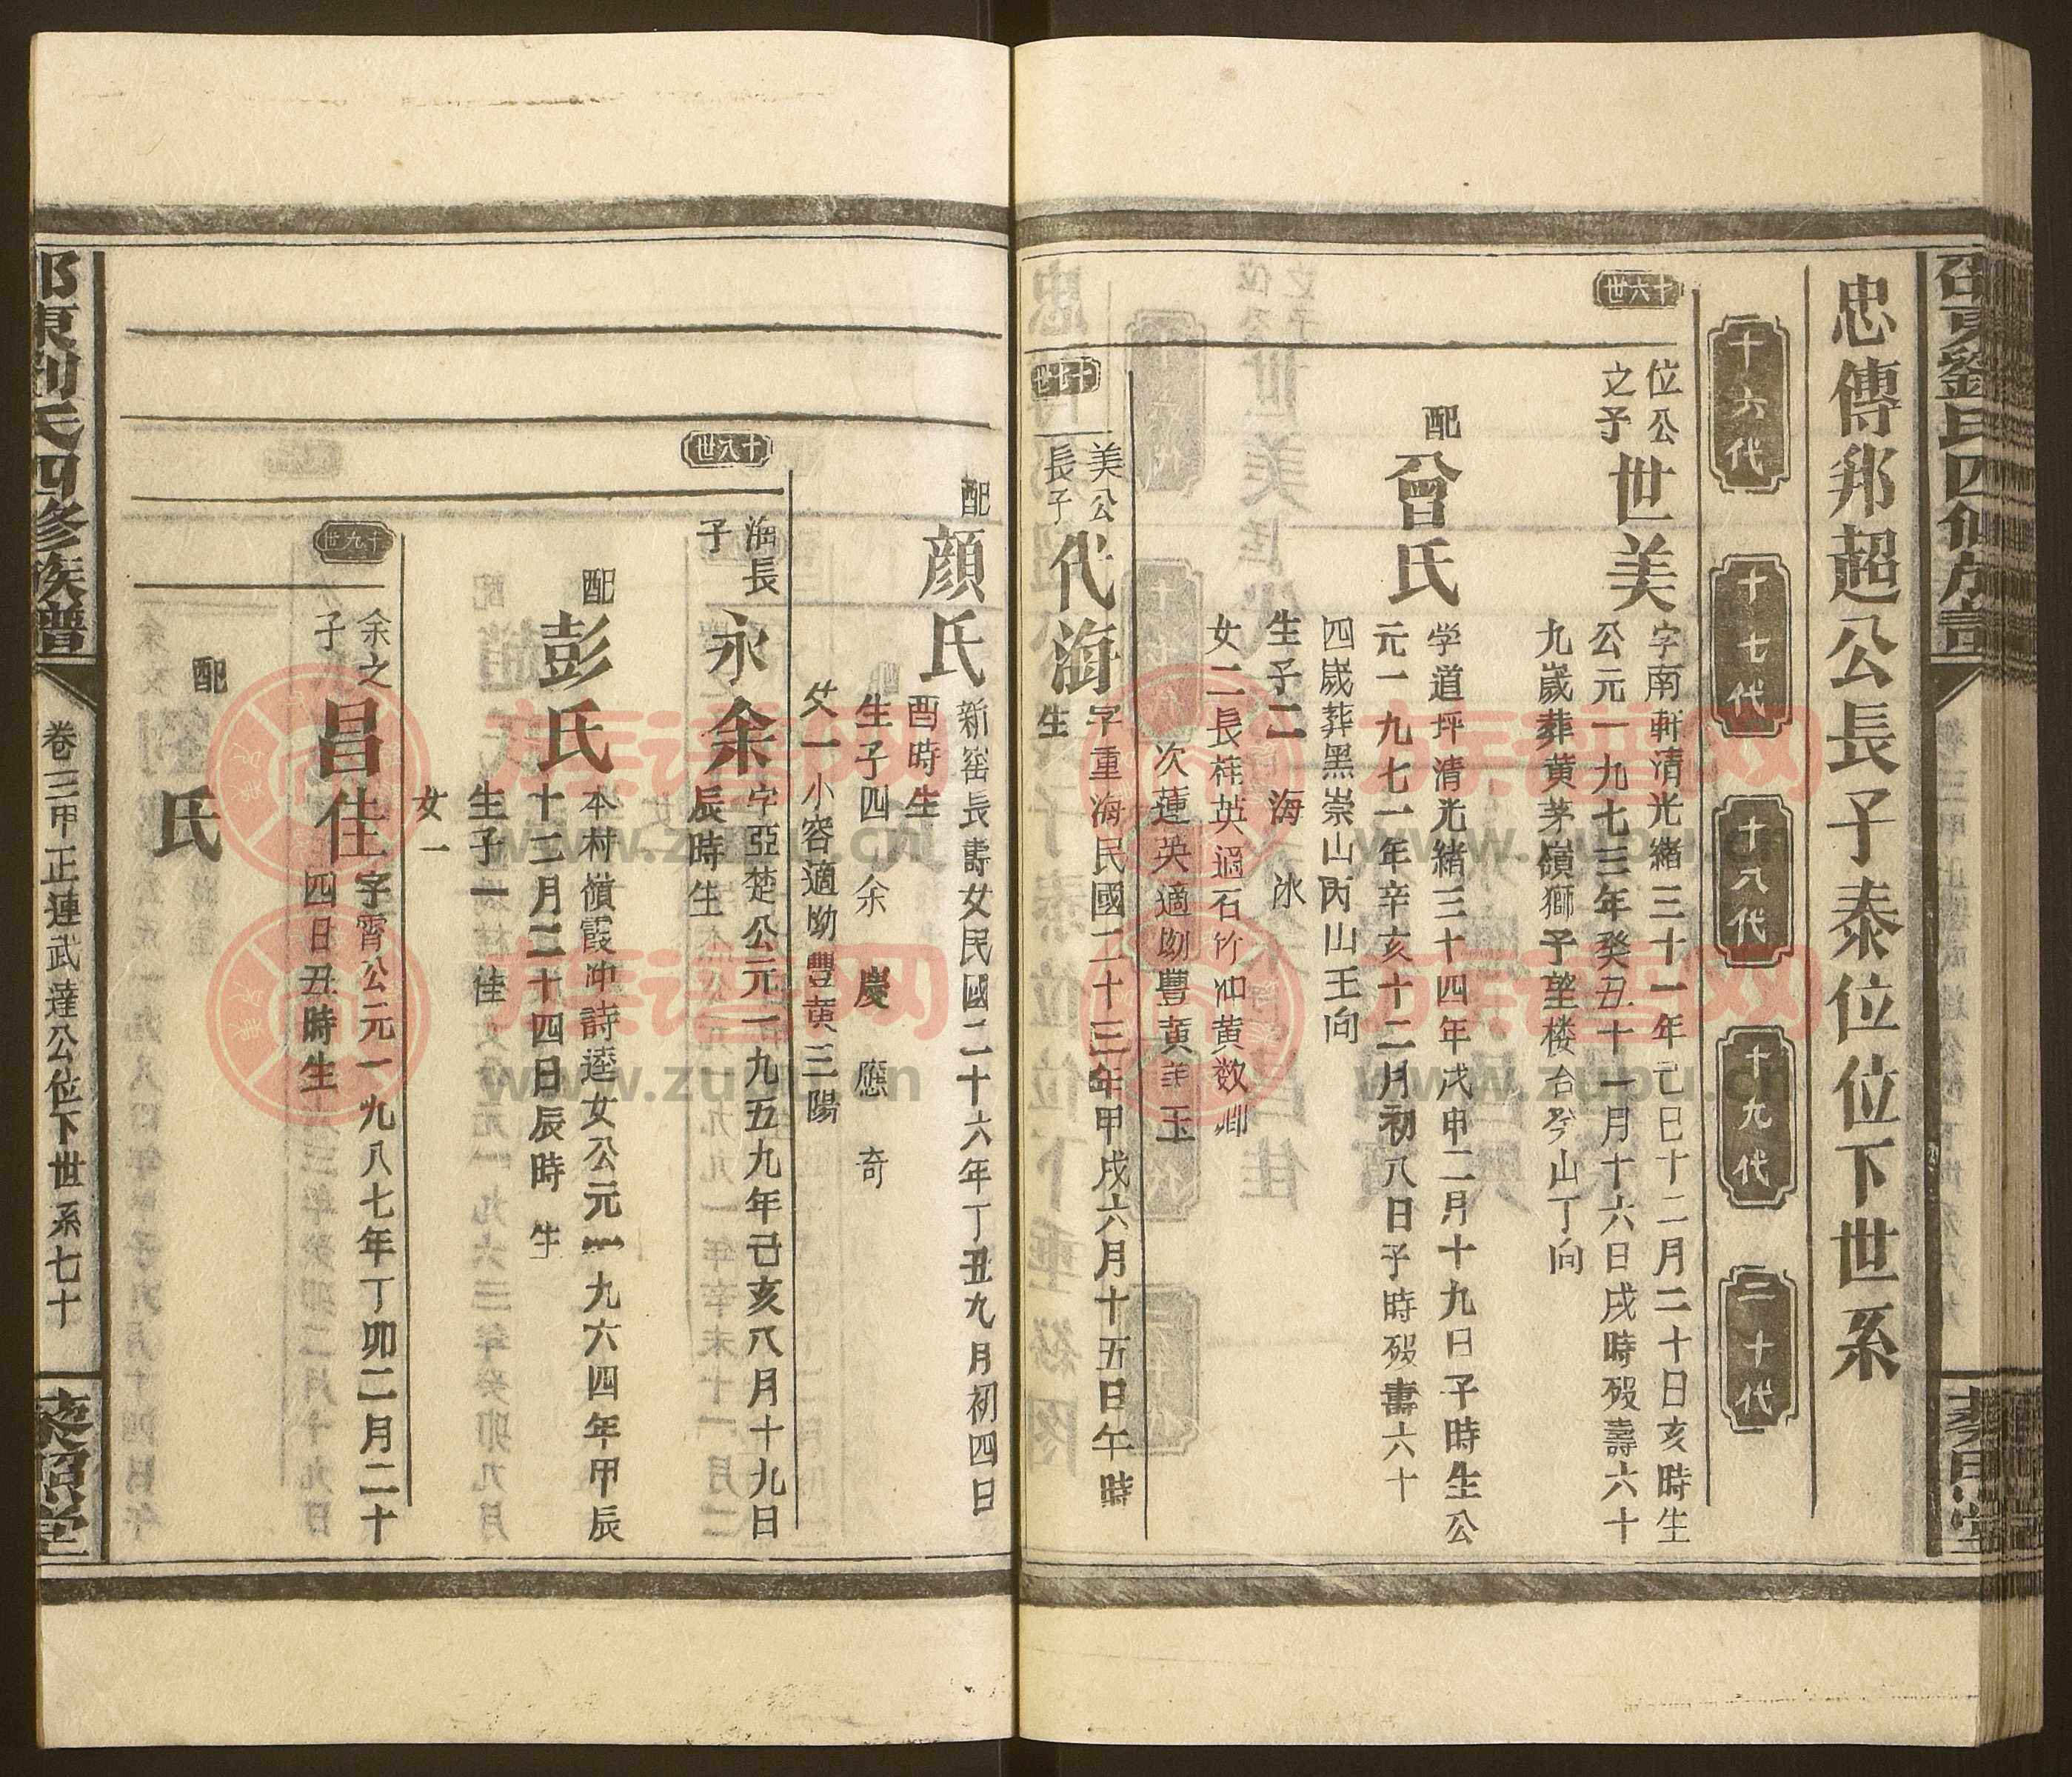 忠傳邦超公長子泰位位下世系
十六代
十七代
十八代
十九代
二十代
十六世
位公
之子
世美
字南軒清光緒三十一年己巳十二月二十日亥時生
公元一九七三年癸丑十一月十六日戌時歿壽六十
九嵗葬黃茅嶺獅子望楼台癸山丁向
配
曾氏
学道坪清光緒三十四年戊申二月十九日子時生公
元一九七一年辛亥十二月初八日子時歿壽六十
四嵗葬黑崇山丙山壬向
生子二 海 冰
女二長桂英適石竹冲黃数
次蓮英適坳豐黃玉
十七世
美公
長子
代海
字重海民國二十三年甲戌六月十五日午時
生
配
顔氏
新窰長壽女民國二十六年丁丑九月初四日
酉時生
生子四 余 慶 應 奇
女一小容適坳豐黃三陽
十八世
海長
子
永余
字亞楚公元一九五九年己亥八月十九日
辰時生
配
彭氏
本村嶺霞冲詩逵女公元一九六四年甲辰
十二月二十四日辰時生
生子一 佳
女一
十九世
余之
子
昌佳
字霄公元一九八七年丁卯二月二十
四日丑時生
配
氏
邵東劉氏四修族譜
卷三甲正連武達公位下世系七十
藜照堂
族谱网
www.zupu.cn